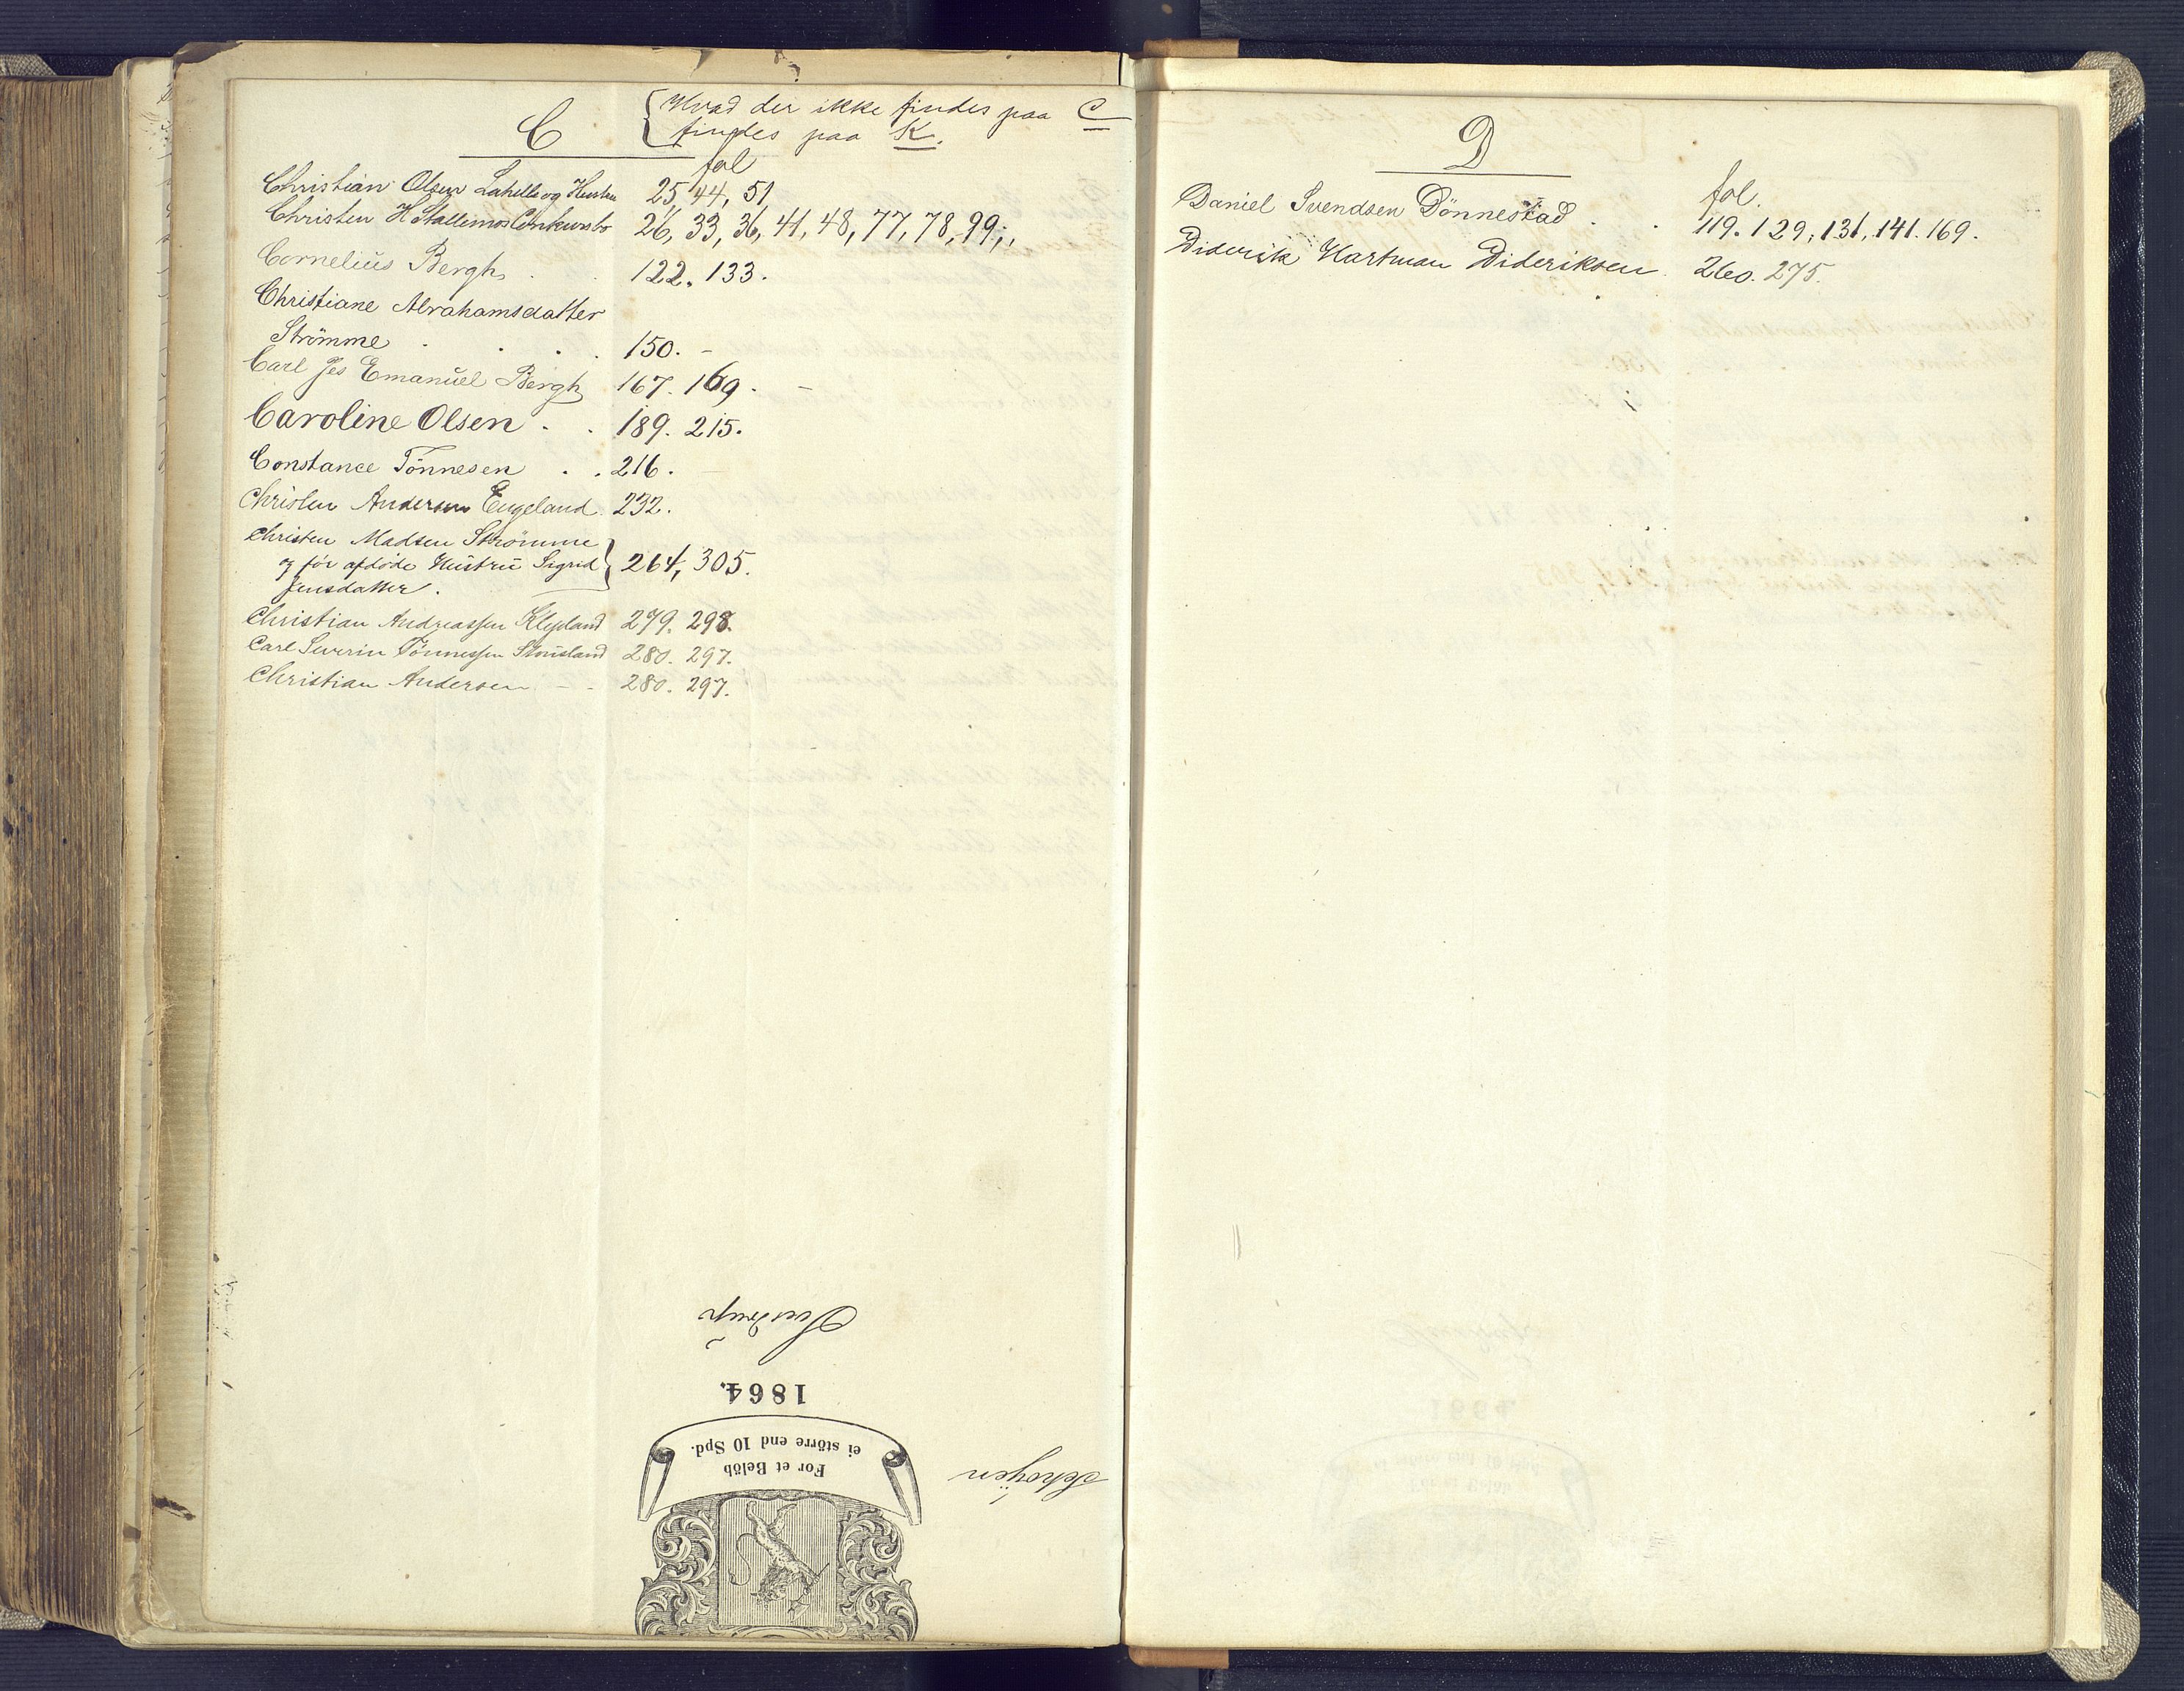 C
Hvad der ikke findes paa C
findes paa K.
fol
Christian Olsen Lahelle og Hustru 25, 44, 51
Christen H Stallemos Conkursbo 26, 33, 36, 41, 48, 77, 78, 99,,
Cornelius Bergh . . 122. 133.
Christiane Abrahamsdatter
Strömme . . . . 150. -
Carl Jes Emanuel Bergh 167. 169. -
Caroline Olsen . . 189. 215.
Constance Tönnesen . . 216.
Christen Andersen Engeland 232.
Christen Madsen Strömme
og før afdöde Hustru Sigrid 264, 305.
Jensdatter.
Christian Andreassen Klepland 279. 298.
Carl Severin Tönnessen 280. 297.
Christian Andersen - - 280. 297.
1864.
For et Belöb
ei större end 10 Spd.
Schøyen
D
fol.
Daniel Svendsen Dönnestad . . 119. 129, 131, 141. 169.
Diderik Hartman Dideriksen 260. 275.